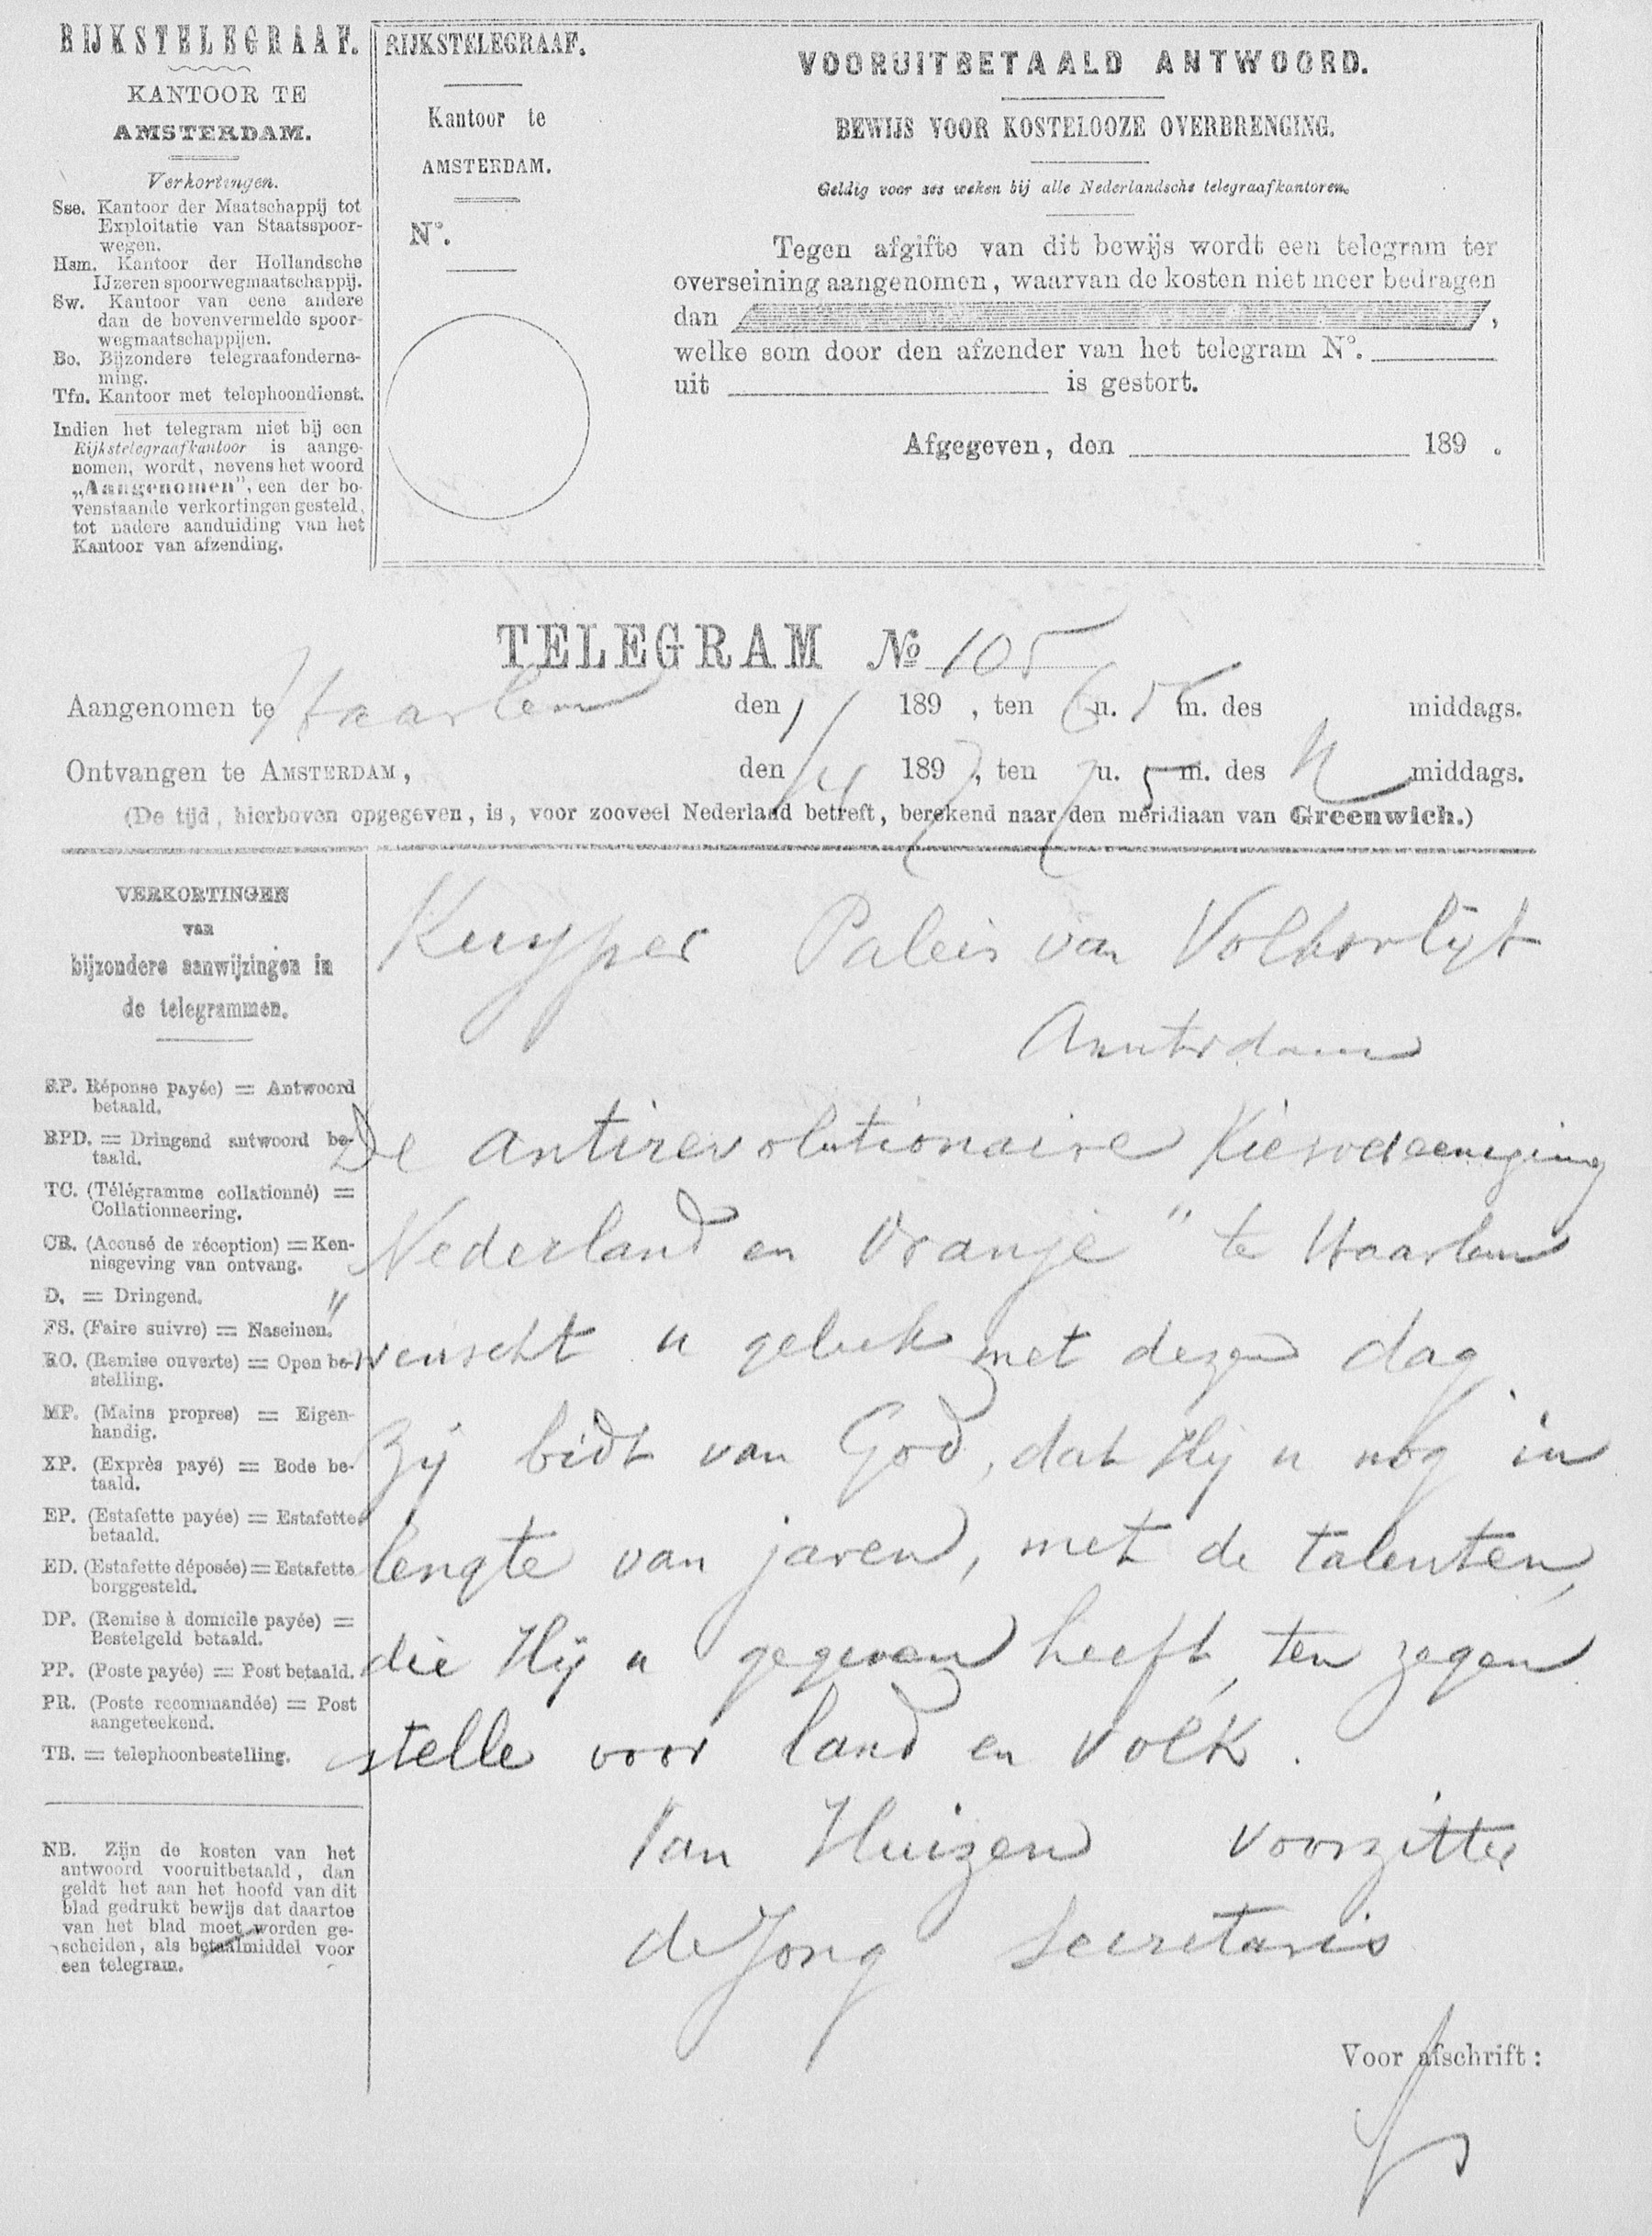 RIJKSTELEGRAAF.
KANTOOR TE
AMSTERDAM.
Verkortingen.
Sse. Kantoor der Maatschappij tot
Exploitatie van Staatsspoor-
wegen.
Hsm. Kantoor der Hollandsche
IJzeren spoorwegmaatschappij.
Sw. Kantoor van eene andere
dan de bovenvermelde spoor-
wegmaatschappijen.
Bo. Bijzondere telegraafonderne-
ming.
Tfn. Kantoor met telephoondienst.
Indien het telegram niet bij een
Rijkstelegraafkantoor is aange-
nomen, wordt, nevens het woord
„Aangenomen", een der bo-
venstaande verkortingen gesteld,
tot nadere aanduiding van het
Kantoor van afzending.
RIJKSTELEGRAAF.
Kantoor te
AMSTERDAM.
No.
VOORUITBETAALD ANTWOORD.
BEWIJS VOOR KOSTELOOZE OVERBRENGING.
Geldig voor zes weken bij alle Nederlandsche telegraafkantoren.
Tegen afgifte van dit bewijs wordt een telegram ter
overseining aangenomen, waarvan de kosten niet meer bedragen
dan ,
welke som door den afzender van het telegram No.
uit is gestort.
Afgegeven, den 189 .
TELEGRAM No 105
Aangenomen te Haarlem den 1/ 189 , ten 6 u. 5 m. des middags.
Ontvangen te AMSTERDAM, den 1/4 1897, ten 7 u. 5 m. des N middags.
(De tijd, hierboven opgegeven, is, voor zooveel Nederland betreft, berekend naar den meridiaan van Greenwich.)
Kuyper Paleis van Volksvlijt
Amsterdam
De antirevolutionaire Kiesvereeniging
Nederland en Oranje" te Haarlem
"
wenscht u geluk met dezen dag
Zij bidt van God, dat Hij u nog in
lengte van jaren, met de talenten,
die Hij u gegeven heeft, ten zegen
stelle voor land en volk.
Van Huizen Voorzitter
de Jong Secretaris
Voor afschrift:
VERKORTINGEN
van
bijzondere aanwijzingen in
de telegrammen.
R.P. Réponse payée) = Antwoord
betaald.
RPD. = Dringend antwoord be-
taald.
TC. (Télégramme collationné) =
Collationneering.
CR. (Accusé de réception) = Ken-
nisgeving van ontvang.
D. = Dringend.
FS. (Faire suivre) = Naseinen.
RO. (Remise ouverte) = Open be-
stelling.
MP. (Mains propres) = Eigen-
handig.
XP. (Exprès payé) = Bode be-
taald.
EP. (Estafette payée) = Estafette
betaald.
ED. (Estafette déposée) = Estafette
borggesteld.
DP. (Remise à domicile payée) =
Bestelgeld betaald.
PP. (Poste payée) = Post betaald.
PR. (Poste recommandée) = Post
aangeteekend.
TB. = telephoonbestelling.
NB. Zijn de kosten van het
antwoord vooruitbetaald, dan
geldt het aan het hoofd van dit
blad gedrukt bewijs dat daartoe
van het blad moet worden ge-
scheiden, als betaalmiddel voor
een telegram.